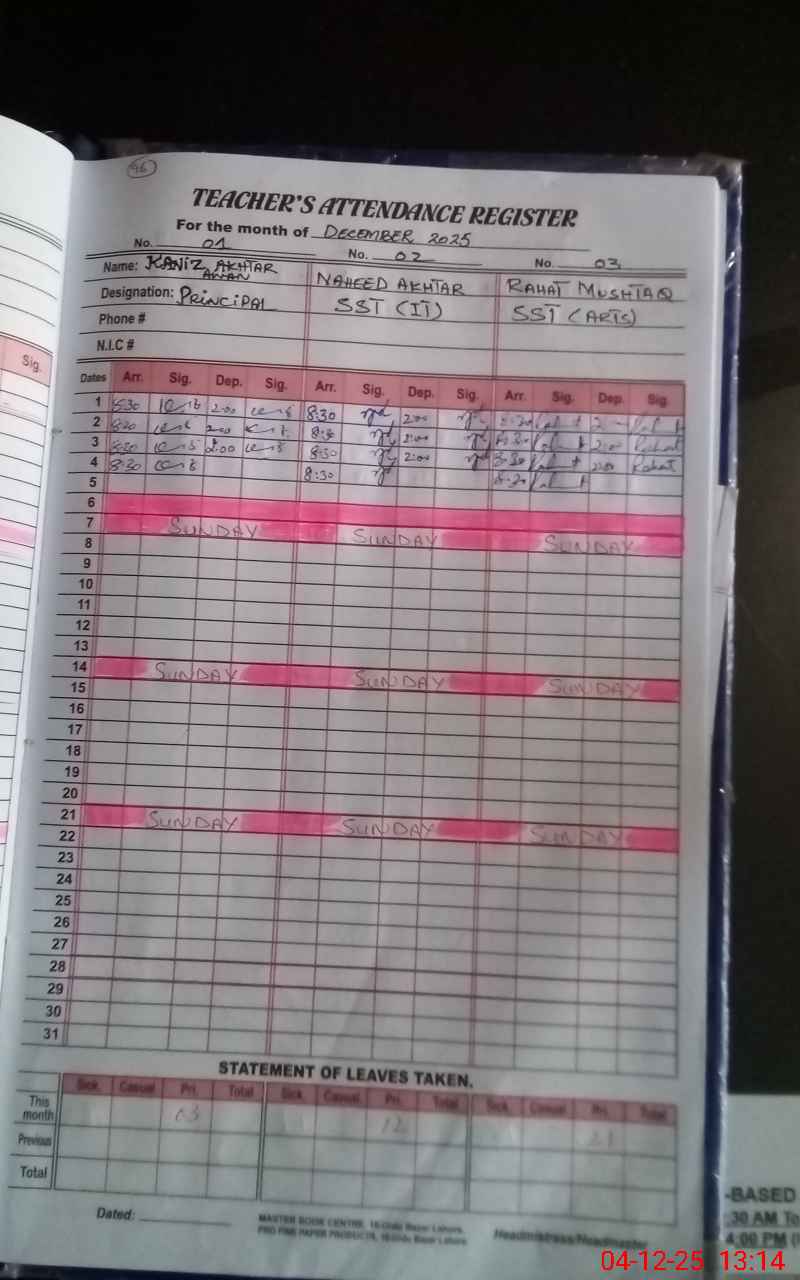 46
TEACHER'S ATTENDANCE REGISTER
For the month of DECEMBER 2025
No. 01 No. 02 No. 03
Name: KANIZ AKHTAR AWAN NAHEED AKHTAR RAHAT MUSHTAQ
Designation: PRINCIPAL SST (IT) SST (ARTS)
Phone #
N.I.C #
Sig.
Dates Arr. Sig. Dep. Sig. Arr. Sig. Dep. Sig. Arr. Sig. Dep. Sig.
1 8:30 2:00 8:30 2:00 8:30
2 8:30 2:00 8:30 2:00 8:30 2:00 Rahat
3 8:30 2:00 8:30 2:00 8:30 2:00 Rahat
4 8:30 8:30 8:30
5
6
7 SUNDAY SUNDAY SUNDAY
8
9
10
11
12
13
14 SUNDAY SUNDAY SUNDAY
15
16
17
18
19
20
21 SUNDAY SUNDAY SUNDAY
22
23
24
25
26
27
28
29
30
31
STATEMENT OF LEAVES TAKEN.
Sick. Casual Pri. Total Sick. Casual Pri. Total Sick. Casual Pri. Total
This month 03 12 21
Previous
Total
Dated:
MASTER BOOK CENTRE, 16-Urdu Bazar Lahore.
PRO FINE PAPER PRODUCTS, 16-Urdu Bazar Lahore
Headmistress/Headmaster
-BASED
:30 AM To
4:00 PM (
04-12-25 13:14